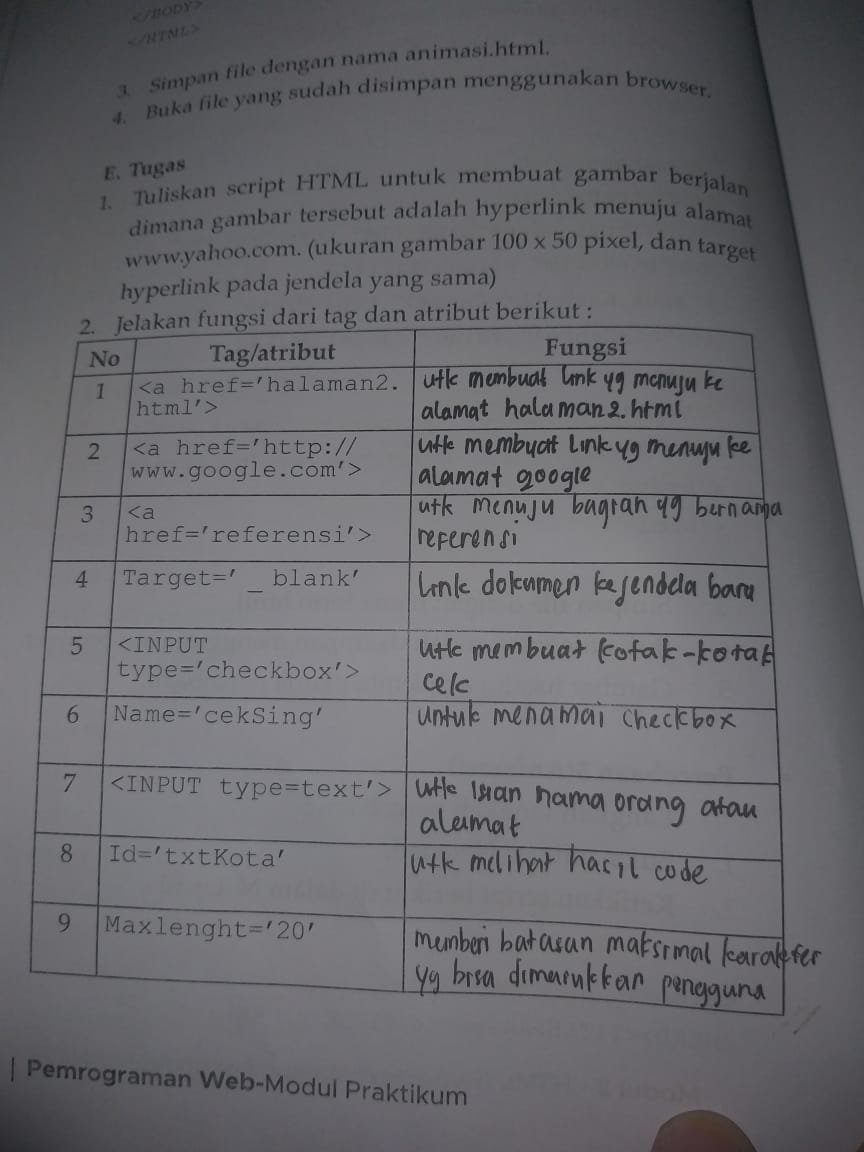 </BODY>
</HTML>
3. Simpan file dengan nama animasi.html.
4. Buka file yang sudah disimpan menggunakan browser.
E. Tugas
1. Tuliskan script HTML untuk membuat gambar berjalan
dimana gambar tersebut adalah hyperlink menuju alamat
www.yahoo.com. (ukuran gambar 100 x 50 pixel, dan target
hyperlink pada jendela yang sama)
2. Jelakan fungsi dari tag dan atribut berikut :
No Tag/atribut Fungsi
1 <a href='halaman2. utk membuat link yg menuju ke
html'> alamat halaman2.html
2 <a href='http:// utk membuat Link yg menuju ke
www.google.com'> alamat google
3 <a utk menuju bagian yg bernama
href='referensi'> referensi
4 Target=' _ blank' Link dokumen ke jendela baru
5 <INPUT utk membuat kotak-kotak
type='checkbox'> cek
6 Name='cekSing' untuk menamai checkbox
7 <INPUT type=text'> utk isian nama orang atau
alamat
8 Id='txtKota' utk melihat hasil code
9 Maxlenght='20' memberi batasan maksimal karakter
yg bisa dimasukkan pengguna
| Pemrograman Web-Modul Praktikum